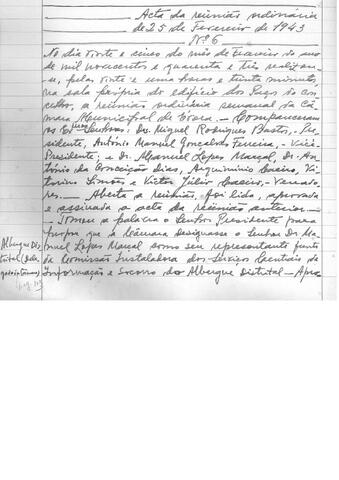 Acta da reunião ordinária
de 25 de Fevereiro de 1943
Nº 6
No dia vinte e cinco do mês de Fevereiro do ano
de mil novecentos e quarenta e três realizou-
se, pelas vinte e uma horas e trinta minutos,
na sala própria do edifício dos Paços do con-
celho, a reunião ordinária semanal da Câ-
mara Municipal de Évora. — Compareceram
os Senhores: Dr. Miguel Rodrigues Bastos, Pre-
sidente, António Manuel Gonçalves Ferreira, Vice-
Presidente; e Dr. Manuel Lopes Marçal, Dr. An-
tónio da Conceição Dias,
Simões e Victor Júlio Vereado-
res. — Aberta a reunião, foi lida, aprovada
e assinada a acta da reunião anterior. —
Tomou a palavra o Senhor Presidente para
propor que a Câmara designasse o Senhor Dr. Ma-
nuel Lopes Marçal como seu representante junto
da Comissão Instaladora dos Serviços Centrais de
Informação e Socorro do Albergue Distrital — Apro
Albergue Dis-
trital